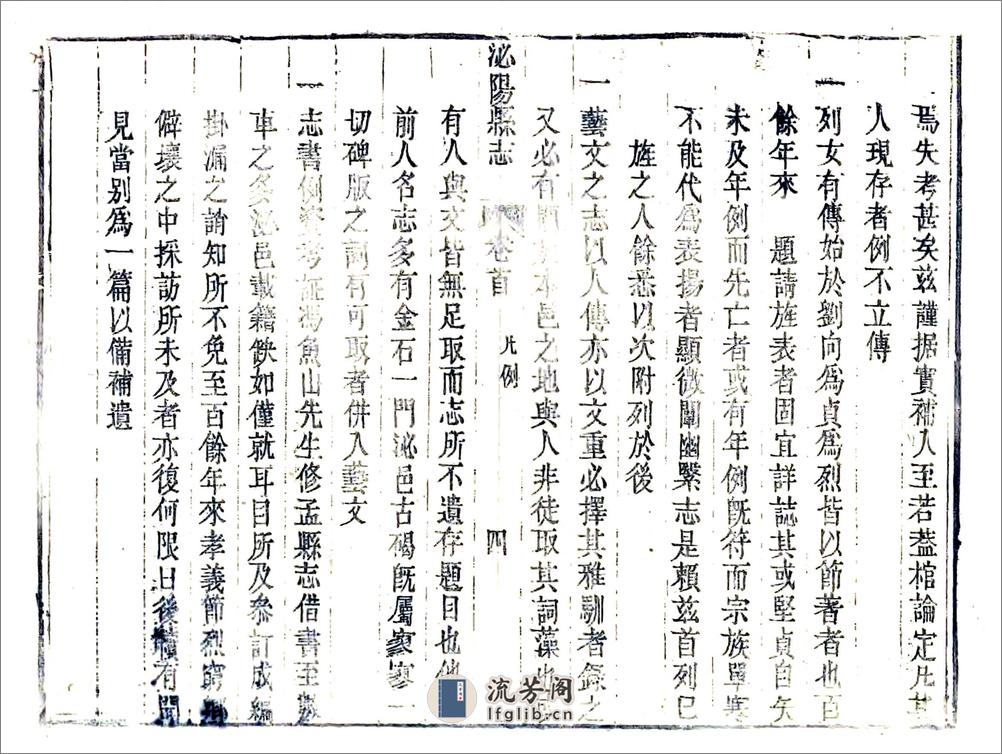 焉失考甚矣茲謹据實補入至若蓋棺論定凡其
人現存者例不立傳
一列女有傳始於劉向為貞為烈皆以節著者也百
餘年來 題請旌表者固宜詳誌其或堅貞自矢
未及年例而先亡者或有年例旣符而宗族單寒
不能代為表揚者顯微闡幽繄志是賴茲首列已
旌之人餘悉以次附列於後
一藝文之志以人傳亦以文重必擇其雅馴者錄之
又必有 本邑之地與人非徒取其詞藻也
泌陽縣志 卷首 凡例 四
有人與文皆無足取而志所不遺存題目也他
前人名志多有金石一門泌邑古碣旣屬寥寥一
切碑版之詞有可取者併入藝文
一志書例資考証馮魚山先生修孟縣志借書至數
車之多泌邑載籍缺如僅就耳目所及叅訂成編
掛漏之誚知所不免至百餘年來孝義節烈窮鄉
僻壤之中採訪所未及者亦復何限日後續有聞
見當別為一篇以備補遺
流芳阁
lfglib.cn